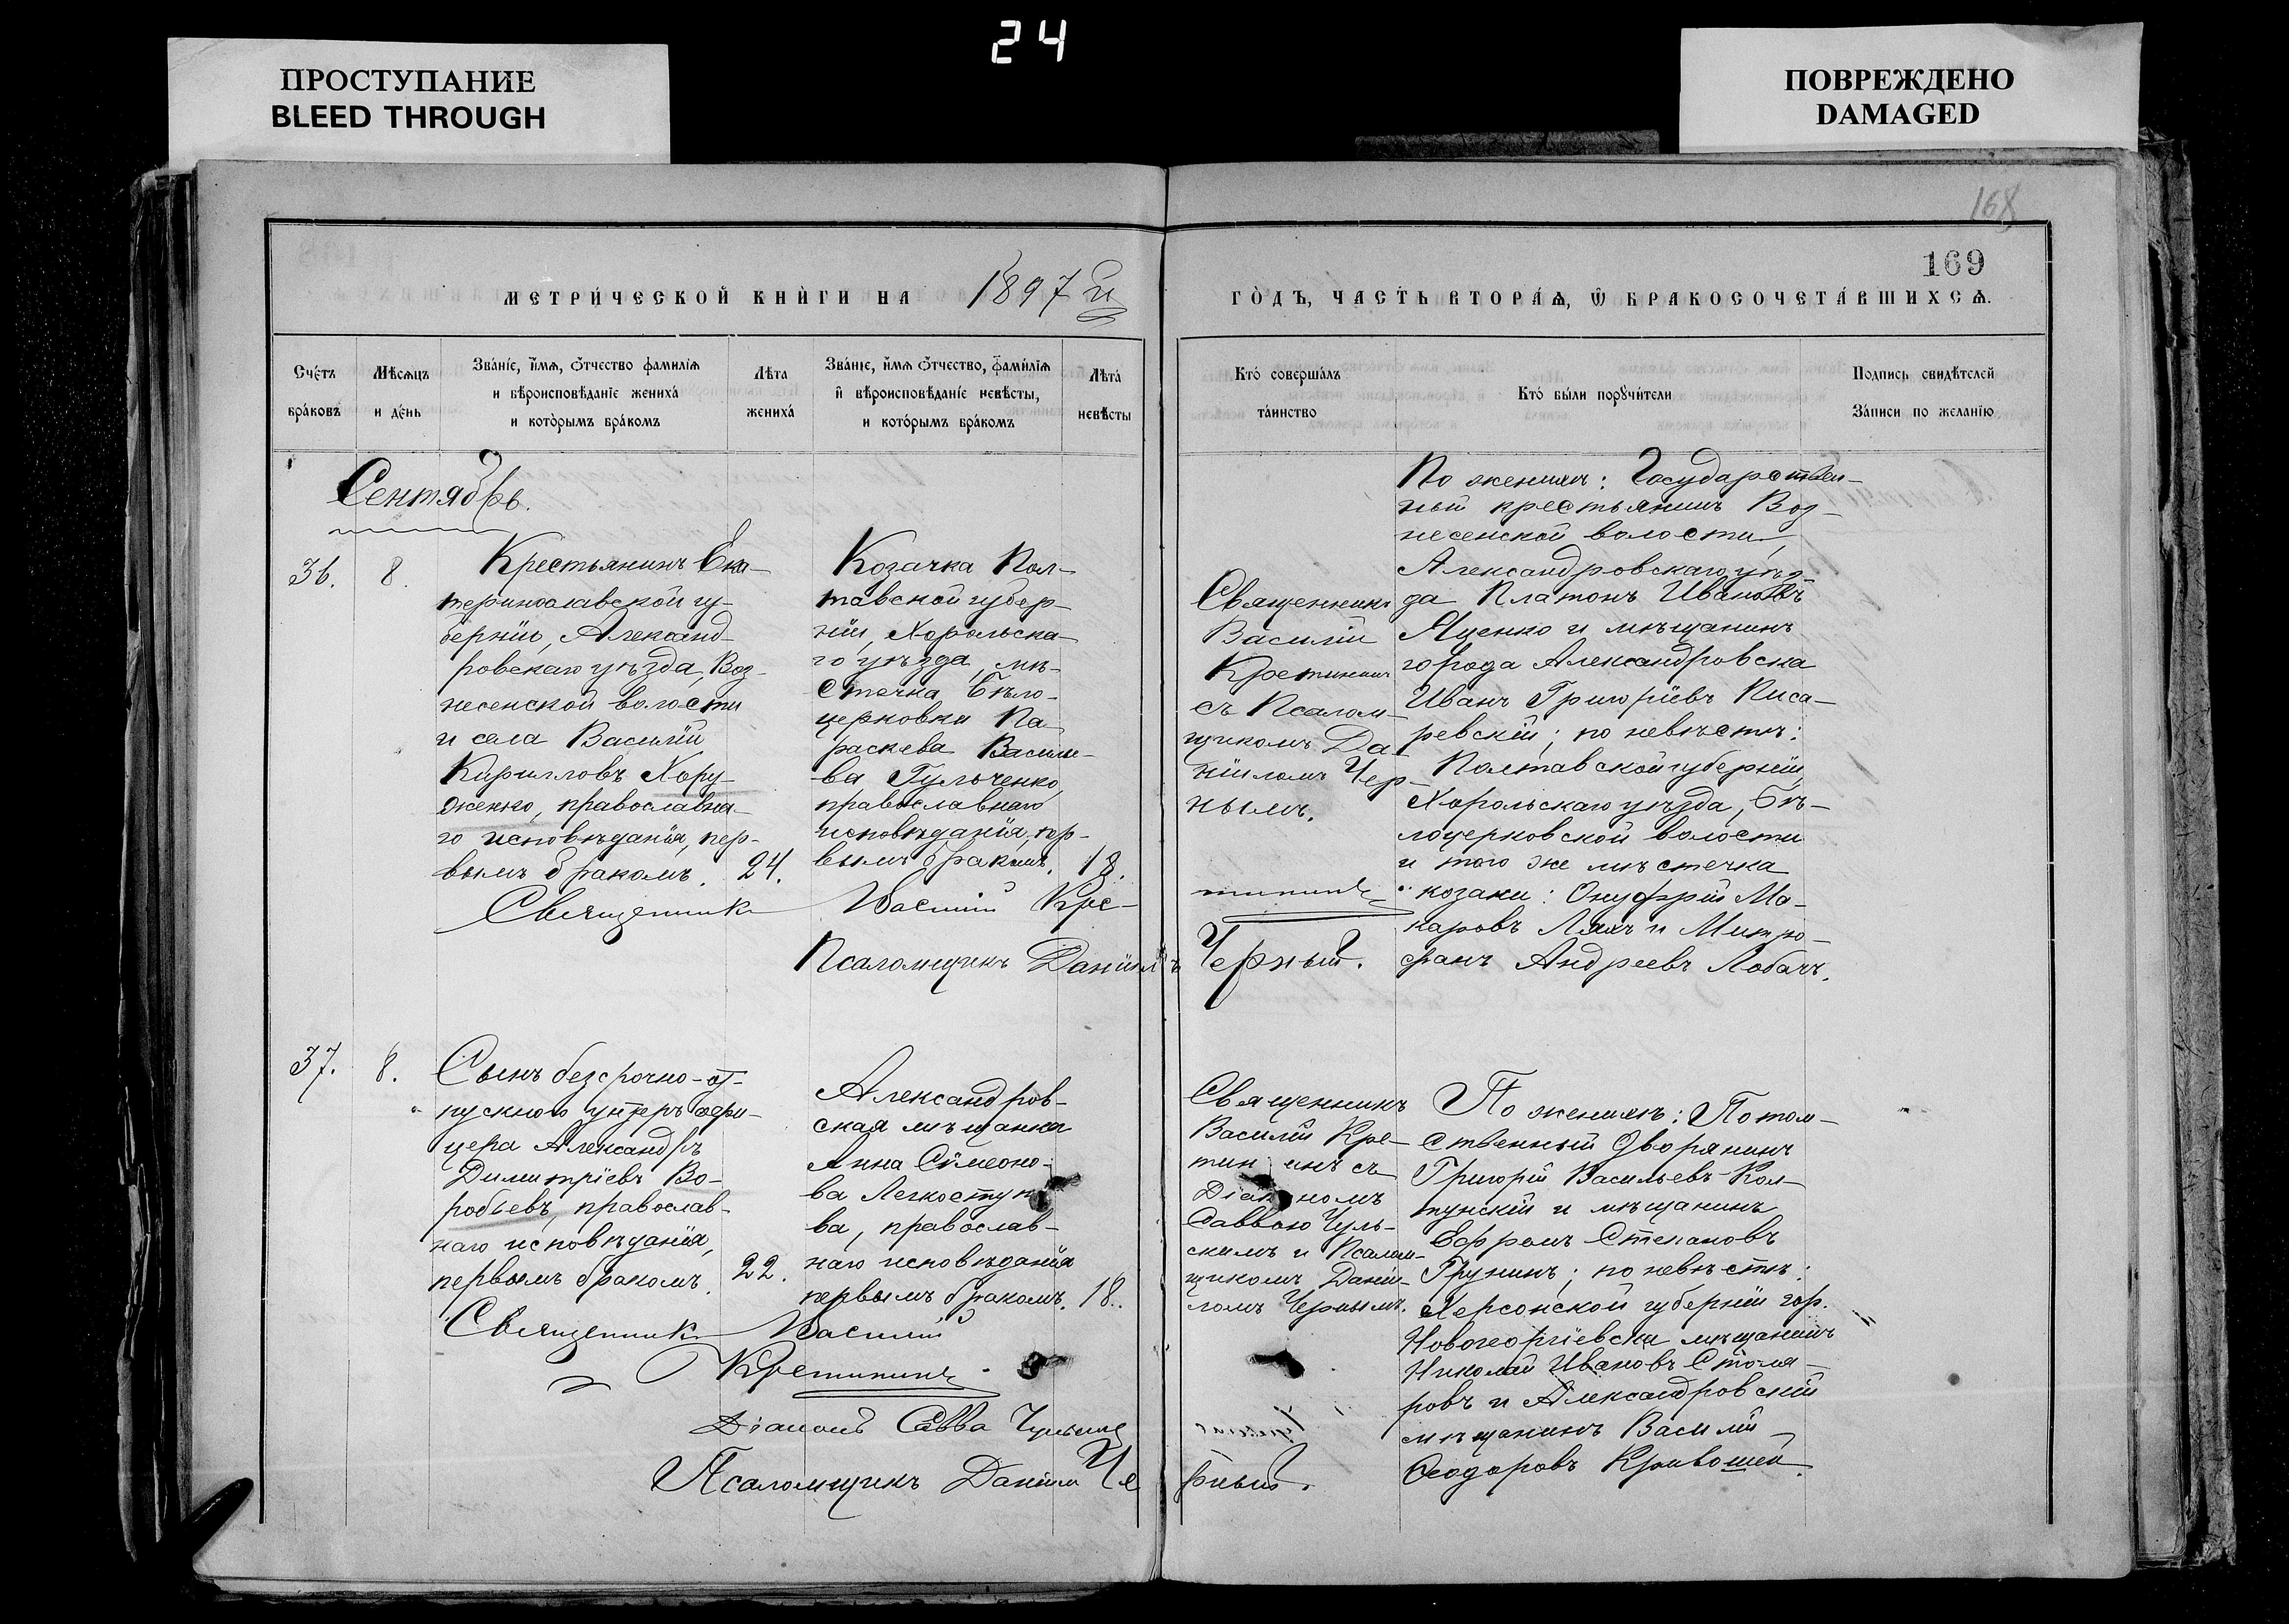 24
ПРОСТУПАНИЕ
BLEED THROUGH
ПОВРЕЖДЕНО
DAMAGED
168
169
МЕТРИ́ЧЕСКОЙ КНИ́ГИ НА 1897 й
ГО́ДЪ, ЧАСТЬ ВТОРА́Ѧ, Ѿ БРАКОСОЧЕТА́ВШИХСѦ.
Сче́тъ
бра́ковъ
Мѣ́сѧцъ
и де́нь
Зва́нїе, и́мѧ, ѻ́тчество фамилїѧ
и вѣроисповѣ́данїе жениха́
и кото́рымъ бра́комъ
Лѣ́та
жениха́
Зва́нїе, и́мѧ ѻ́тчество, фами́лїѧ
и҆ вѣроисповѣ́данїе невѣ́сты,
и кото́рымъ бра́комъ
Лѣ́та
невѣ́сты
Кто́ соверша́лъ
та́инство
Кто́ бы́ли порꙋчи́тели
Подпись свидѣ́телей
За́писи по жела́нїю
Сентябрь.
36.
8.
Крестьянинъ Ека-
теринославской гу-
берніи, Александ-
ровскаго уѣзда, Воз-
несенской волости
и села Василій
Кирилловъ Хору-
женко, православна-
го исповѣданія, пер-
вымъ бракомъ.
24.
Козачка Пол-
тавской губер-
ніи, Хорольска-
го уѣзда, мѣ-
стечка Бѣло-
церковки Па-
раскева Василье-
ва Гульченко,
православнаго
исповѣданія, пер-
вымъ бракомъ.
18.
Священникъ
Василій
Кретининъ
съ Псалом-
щикомъ Да-
ніиломъ Чер-
нымъ.
По женихѣ: Государствен-
ный крестьянинъ Воз-
несенской волости,
Александровскаго уѣз-
да Платонъ Ивановъ
Яценко и мѣщанинъ
города Александровска
Иванъ Григоріевъ Писа-
ревскій; по невѣстѣ:
Полтавской губерніи,
Хорольскаго уѣзда, Бѣ-
лоцерковской волости
и того же мѣстечка
козаки: Онуфрій Ма-
каровъ Ляхъ и Митро-
фанъ Андреевъ Лобачъ.
Священникъ Василій Кре-
тининъ
Псаломщикъ Даніилъ Черный.
37.
8.
Сынъ безсрочно-от-
пускного унтеръ офи-
цера Александръ
Димитріевъ Во-
робьевъ, православ-
наго исповѣданія,
первымъ бракомъ.
22.
Александров-
ская мѣщанка
Анна Сѵмеоно-
ва Легкоступо-
ва, православ-
наго исповѣданія
первымъ бракомъ.
18.
Священникъ
Василій Кре-
тининъ съ
Діакономъ
Саввою Чуль-
скимъ и Псалом-
щикомъ Дані-
ломъ Чернымъ.
По женихѣ: Потом-
ственный дворянинъ
Григорій Васильевъ Кол-
пунскій и мѣщанинъ
Ефремъ Степановъ
Грунинъ; по невѣстѣ:
Херсонской губерніи гор.
Новогеоргіевска мѣщанинъ
Николай Ивановъ Столя-
ровъ и Александровскій
мѣщанинъ Василій
Ѳеодоровъ Кривошей.
Священникъ Василій
Кретининъ
Діаконъ Савва Чульскій
Псаломщикъ Даніилъ Че
рный.